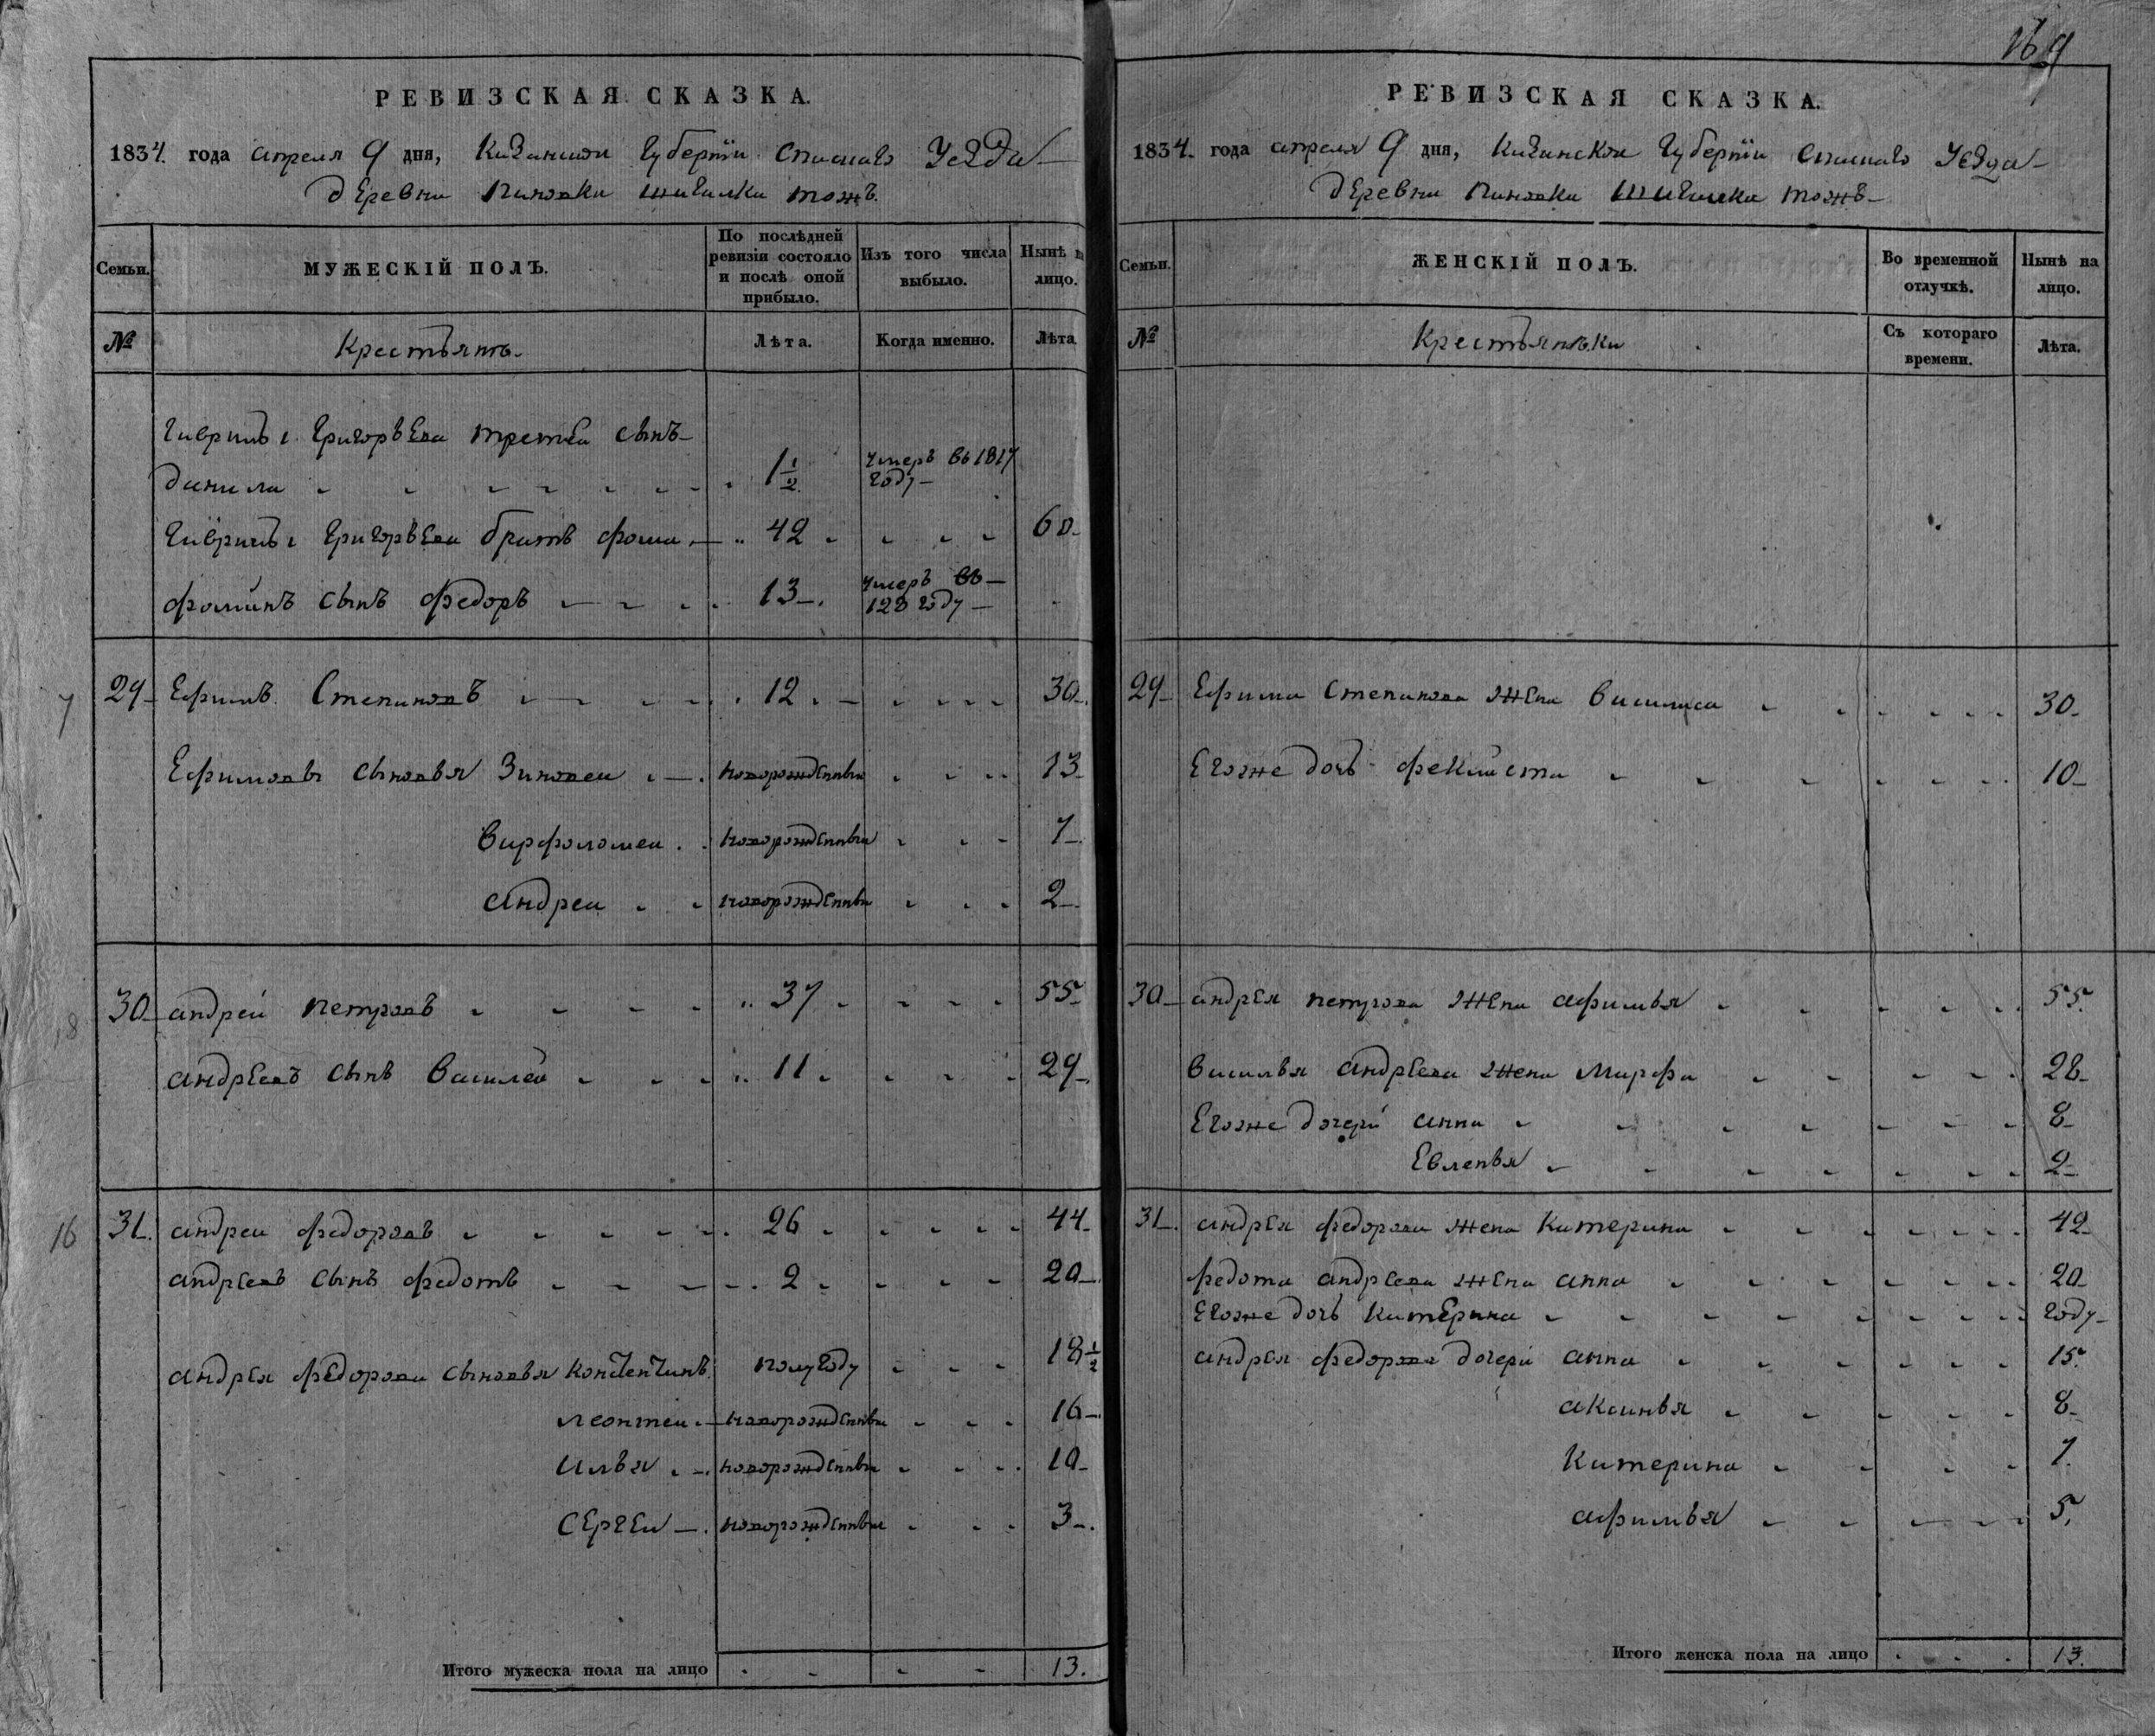 169
РЕВИЗСКАЯ СКАЗКА.
1834. года апреля 9 дня, Казанской Губернїи Спаскаго Уезда
деревни тожъ.
Семьи.
МУЖЕСКІЙ ПОЛЪ.
По послѣдней ревизіи состояло и послѣ оной прибыло.
Изъ того числа выбыло.
Нынѣ на лицо.
№
Крестьянъ.
Лѣта.
Когда именно.
Лѣта
Гаврилы Григорьева третей сынъ
данила 1 1/2 умеръ въ 1817 году
Гаврилы Григорьева братъ фома 42 60
фоминъ сынъ федоръ 13 умеръ въ году
29 Ефимъ Степановъ 12 30
Ефимовы сыновья Зиновеи новорожденны 13
варфоломеи новорожденны 7
андреи новорожденны 2
30 андрей петровъ 37 55
андреевъ сынъ василей 11 29
31. андреи федоровъ 26 44
андреевъ сынъ федотъ 2 20
андрея федорова сыновья констентинъ полугоду 18 1/2
леонтеи новорожденны 16
илья новорожденны 10
сергеи новорожденны 3
Итого мужеска пола на лицо 13.
7
18
16
РЕВИЗСКАЯ СКАЗКА.
1834. года апреля 9 дня, Казанской Губернїи Спаскаго Уезда
деревни тожъ
Семьи.
ЖЕНСКІЙ ПОЛЪ.
Во временной отлучкѣ.
Нынѣ на лицо.
№
Крестьянъки
Съ котораго времени.
Лѣта.
29 Ефима Степанова жена василиса 30
Егоже дочь феклиста 10
30 андрея петрова жена афимья 55
василья андреева жена марфа 28
Егоже дочери анна 8
Евленья 2
31. андрея федорова жена катерина 42
федота андреева жена анна 20
Егоже дочь катерина году
андрея федорова дочери анна 15
аксинья 8
катерина 7
афимья 5
Итого женска пола на лицо 13.